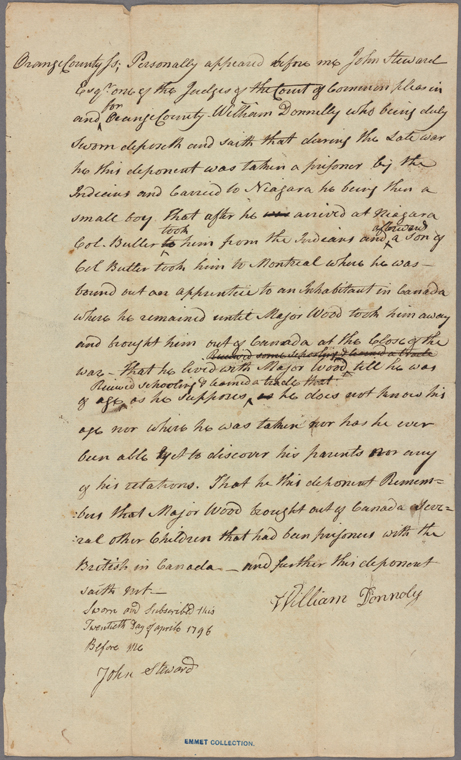 Orange County ss; Personally appeared before me John Steward
Esqr. one of the Judges of the Court of Common pleas in
and for Orange County William Donnelly who being duly
Sworn deposeth and saith that during the Late war
he this deponent was taken a prisoner by the
Indians and Carried to Niagara he being then a
small boy that after he was arrived at Niagara
took afterward
Col. Butler him from the Indians and a Son of
Col Butler took him to Montreal where he was
bound out an apprentice to an Inhabitant in Canada
where he remained until Major Wood took him away
and brought him out of Canada at the Close of the
Received some schooling & learned a trade
war – that he lived with Major Wood till he was
Received schooling & learned a trade that
of age as he supposes, he does not know his
age nor where he was taken nor has he ever
been able yet to discover his parents nor any
of his relations. That he this deponent Remem-
:bers that Major Wood brought out of Canada seve-
:ral other Children that had been prisoners with the
British in Canada – and further this deponent
saith not –
William Donnoly
Sworn and Subscribed this
Twentieth Day of april 1796
Before me
John Steward
EMMET COLLECTION.